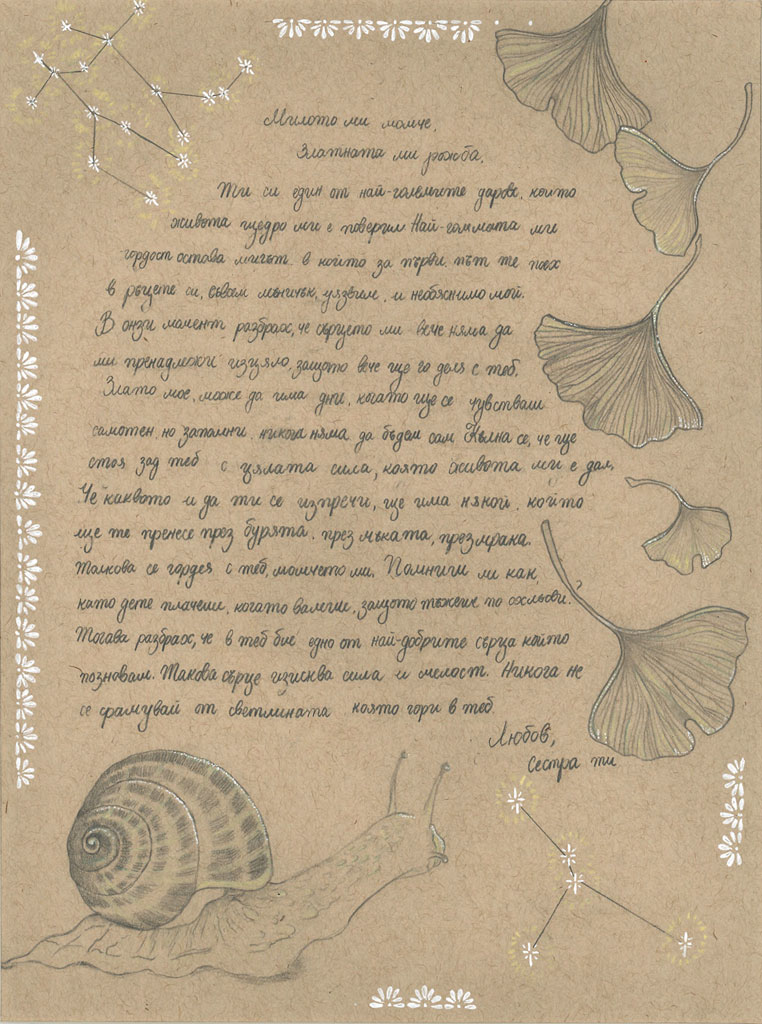 Милото ми момче,
Златната ми рожба,
Ти си един от най-големите дарове, които
живота щедро ми е поверил. Най-голямата ми
гордост остава мигът, в който за първи път те поех
в ръцете си, съвсем мъничък, уязвим, и необяснимо мой.
В онзи момент разбрах, че сърцето ми вече няма да
ми принадлежи изцяло, защото вече ще го деля с теб.
Злато мое, може да има дни, когато ще се чувстваш
самотен, но запомни, никога няма да бъдеш сам. Кълна се, че ще
стоя зад теб с цялата сила, която живота ми е дал.
Че каквото и да ти се изпречи, ще има някой, който
ще те пренесе през бурята, през мъката, през мрака.
Толкова се гордея с теб, момчето ми. Помниш ли как,
като дете плачеше, когато валеше, защото тъжеше по охлюви?
Тогава разбрах, че в теб бие едно от най-добрите сърца който
познавам. Такова сърце изисква сила и смелост. Никога не
се срамувай от светлината която гори в теб.
Любов,
Сестра ти